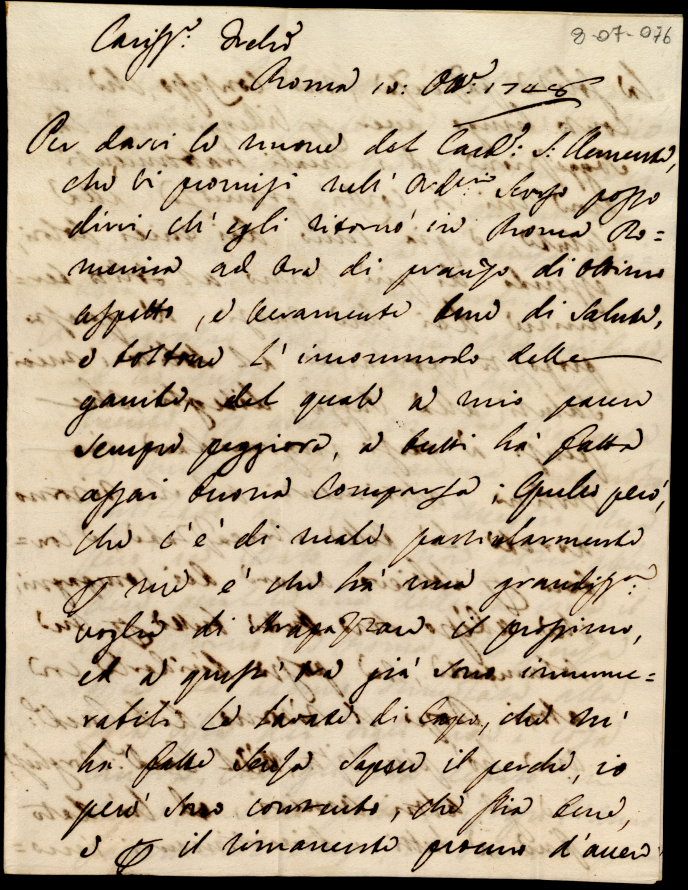 8-07-076
Cariss.º Fratello
Roma 10: 8bre 1748
Per darvi le nuove del Card: S. Clemente,
che vi promisi nell' Ord.rio scorso posso
dirvi, ch' egli ritornò in Roma Do=
menica ad ora di pranzo di ottimo
aspetto, e veramente bene di salute,
e toltone l' incommodo delle
gambe, del quale a mio parere
sempre peggiora, a tutti hà fatta
assai buona comparsa; Quello però,
che c'è di male particolarmente
me è che hà una grandiss.ma
voglia di strapazzare il prossimo,
ed a quest' ora già sono innume=
rabili le lavate di Capo, che m'
hà fatte senza sapere il perche, io
però sono contento, che stia bene,
e il rimanente procuro d'avere